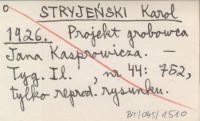 STRYJEŃSKI Karol
1926. Projekt grobowca
Jana Kasprowicza. —
Tyg. Il. , nr 44: 752,
tylko reprod. rysunku.
BT/1045/1510